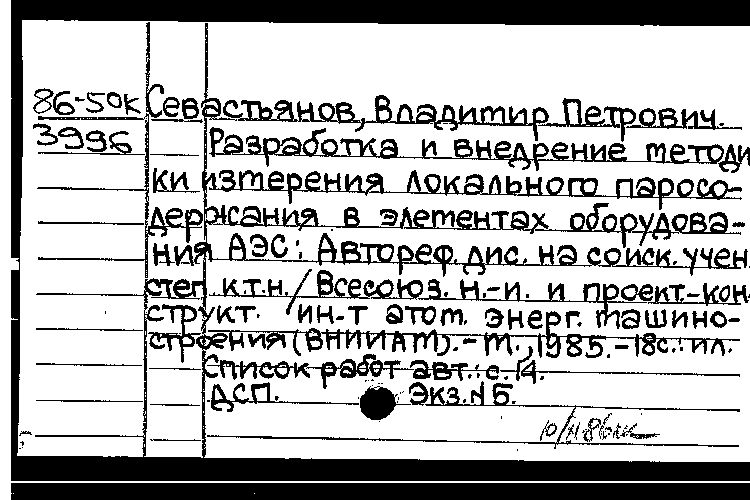 86-50к Севастьянов, Владимир Петрович.
3996 Разработка и внедрение методи
ки измерения локального паросо-
держания в элементах оборудова-
ния АЭС: Автореф. дис. на соиск. учен
степ. к.т.н. / Всесоюз. н.-и. и проект.-кон
структ. ин-т атом. энерг. машино-
строения (ВНИИАМ). - М., 1985. - 18с.: ил.
Список работ авт.: с. 14.
ДСП. Экз. № 5.